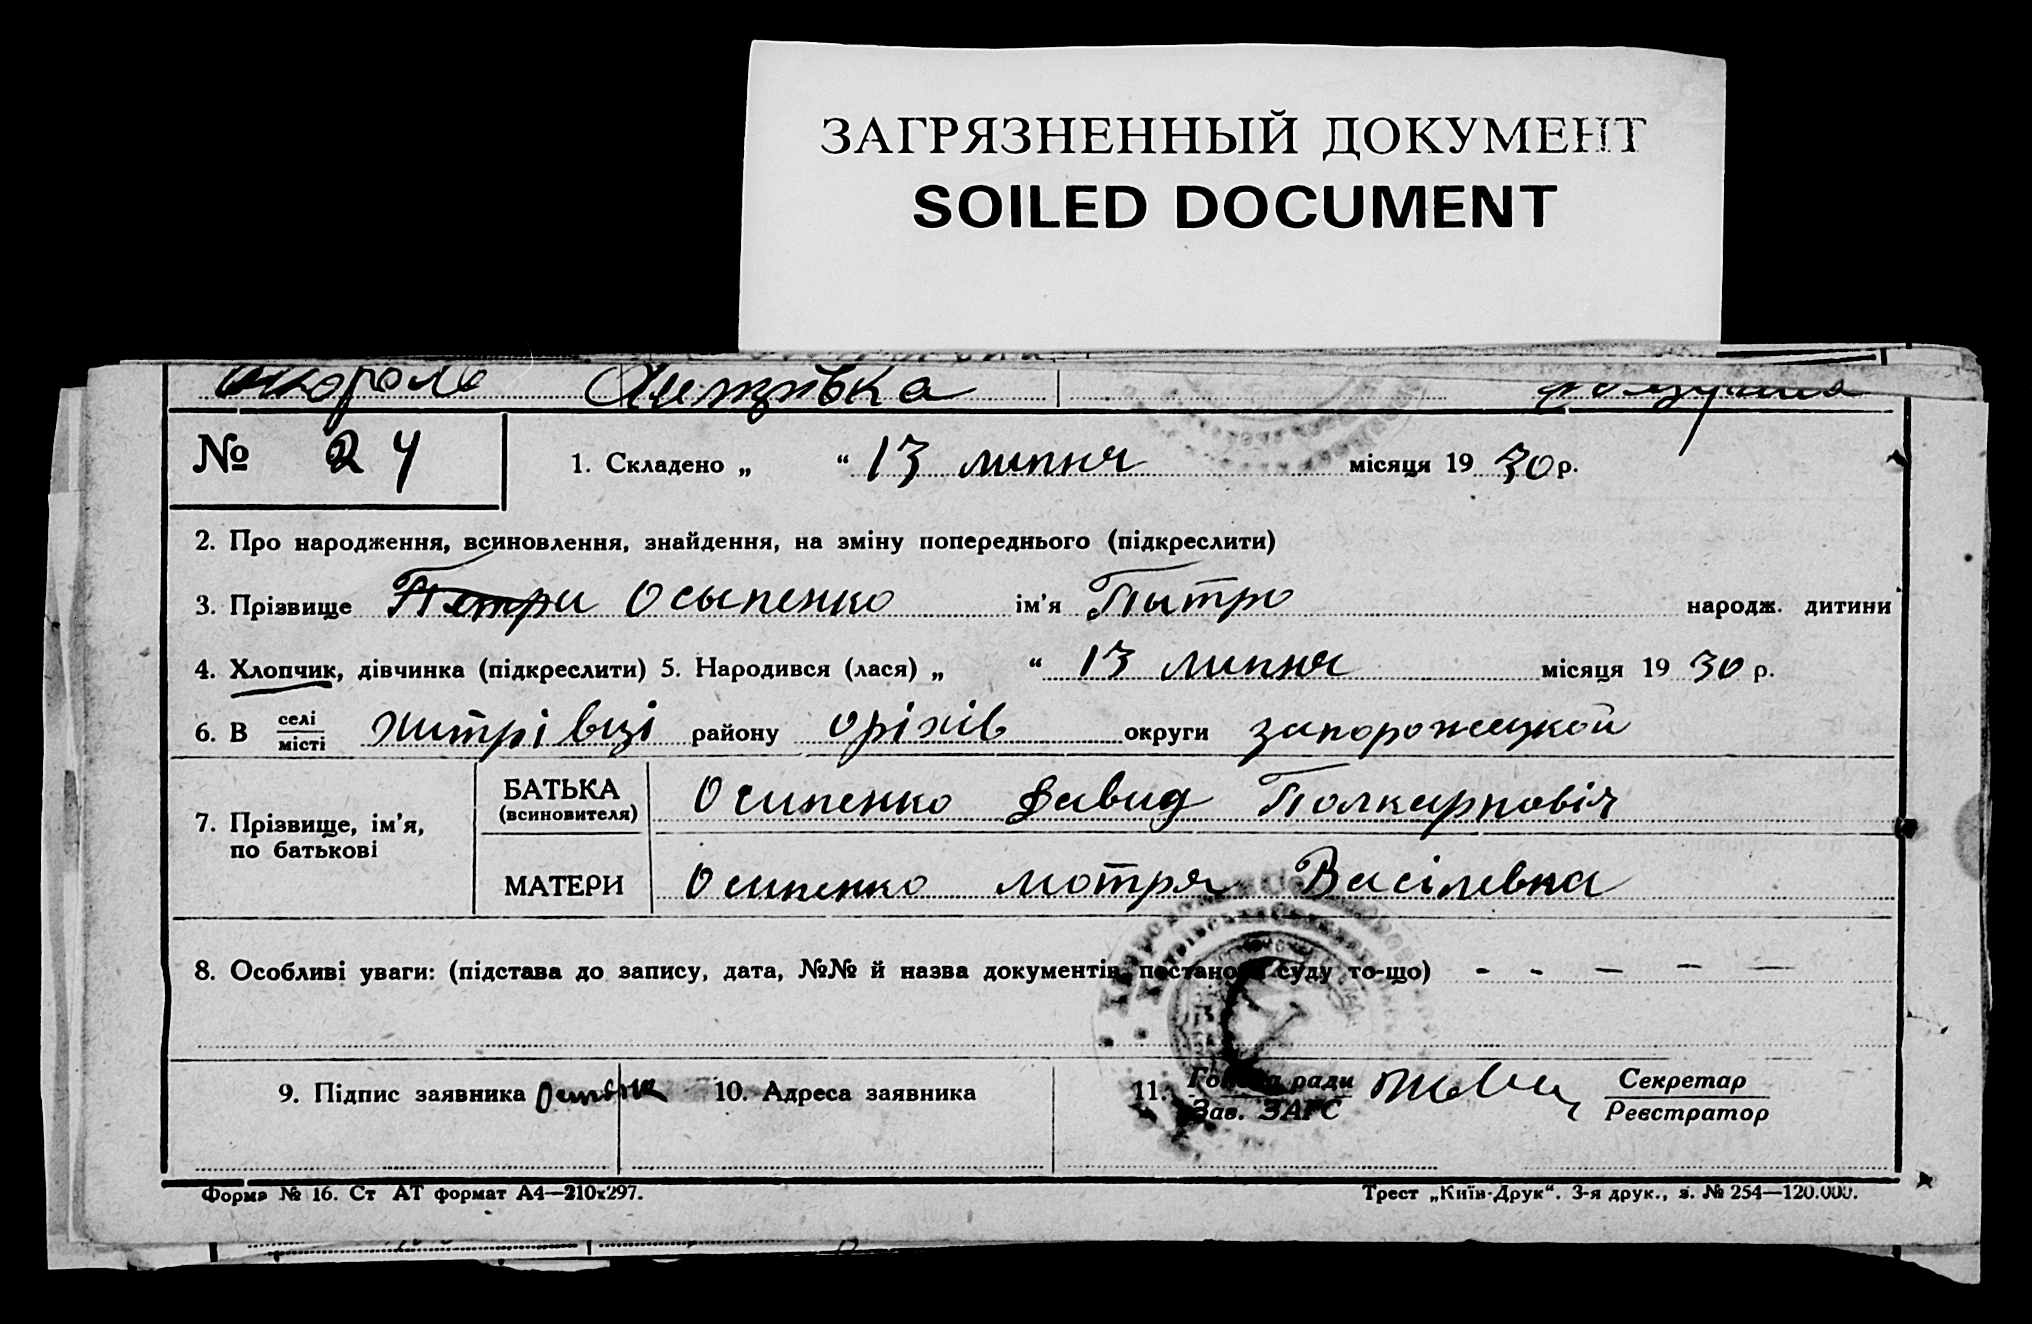 ЗАГРЯЗНЕННЫЙ ДОКУМЕНТ
SOILED DOCUMENT
№ 24 1. Складено „ “ 13 липня місяця 19 30 р.
2. Про народження, всиновлення, знайдення, на зміну попереднього (підкреслити)
3. Прізвище Петри Осыпенко ім'я Пытро народж. дитини
4. Хлопчик, дівчинка (підкреслити) 5. Народився (лася) „ “ 13 липня місяця 19 30 р.
6. В селі
місті району оріхів округи запорожецкой
7. Прізвище, ім'я, по батькові
БАТЬКА (всиновителя) Осипенко Давид Полкарповіч
МАТЕРИ Осипенко мотря Васілевна
8. Особливі уваги: (підстава до запису, дата, №№ й назва документів, постанова суду то-що) - - - - -
9. Підпис заявника 10. Адреса заявника 11. Голова ради
Зав. ЗАГС
Секретар
Реєстратор
Форма № 16. Ст АТ формат А4—210х297. Трест „Київ-Друк“. 3-я друк., з. № 254—120.000.